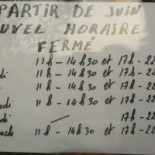 PARTIR DE JUIN
UVEL HORAIRE
FERMÉ
11h - 14h30 et 17h - 22
di 11h - 14h30 et 17h - 22
di 11h - 14h30 et 17h - 22
11h - 14h30 et 17h - 22
edi / 17h - 22
di 17h - 22
nche 11h - 14h30 et 17h - 22